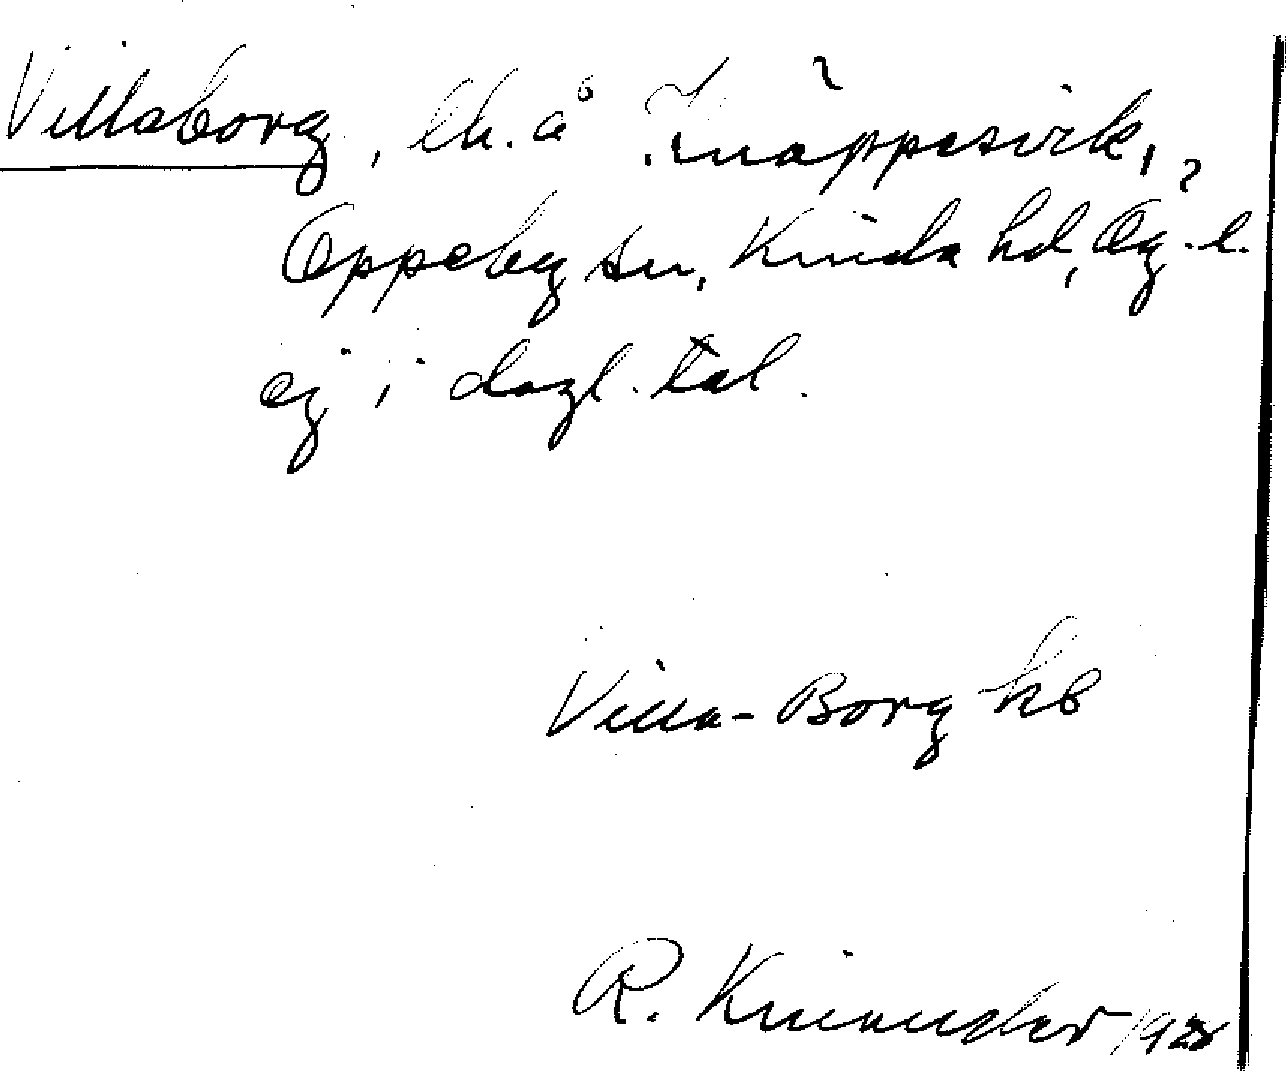 Villaborg, lh. å Knäppesvik,
Oppeby sn, Kinda hd, Ög. l.
ej i dagl. tal.
Villa-Borg kb
R. Knivander 192